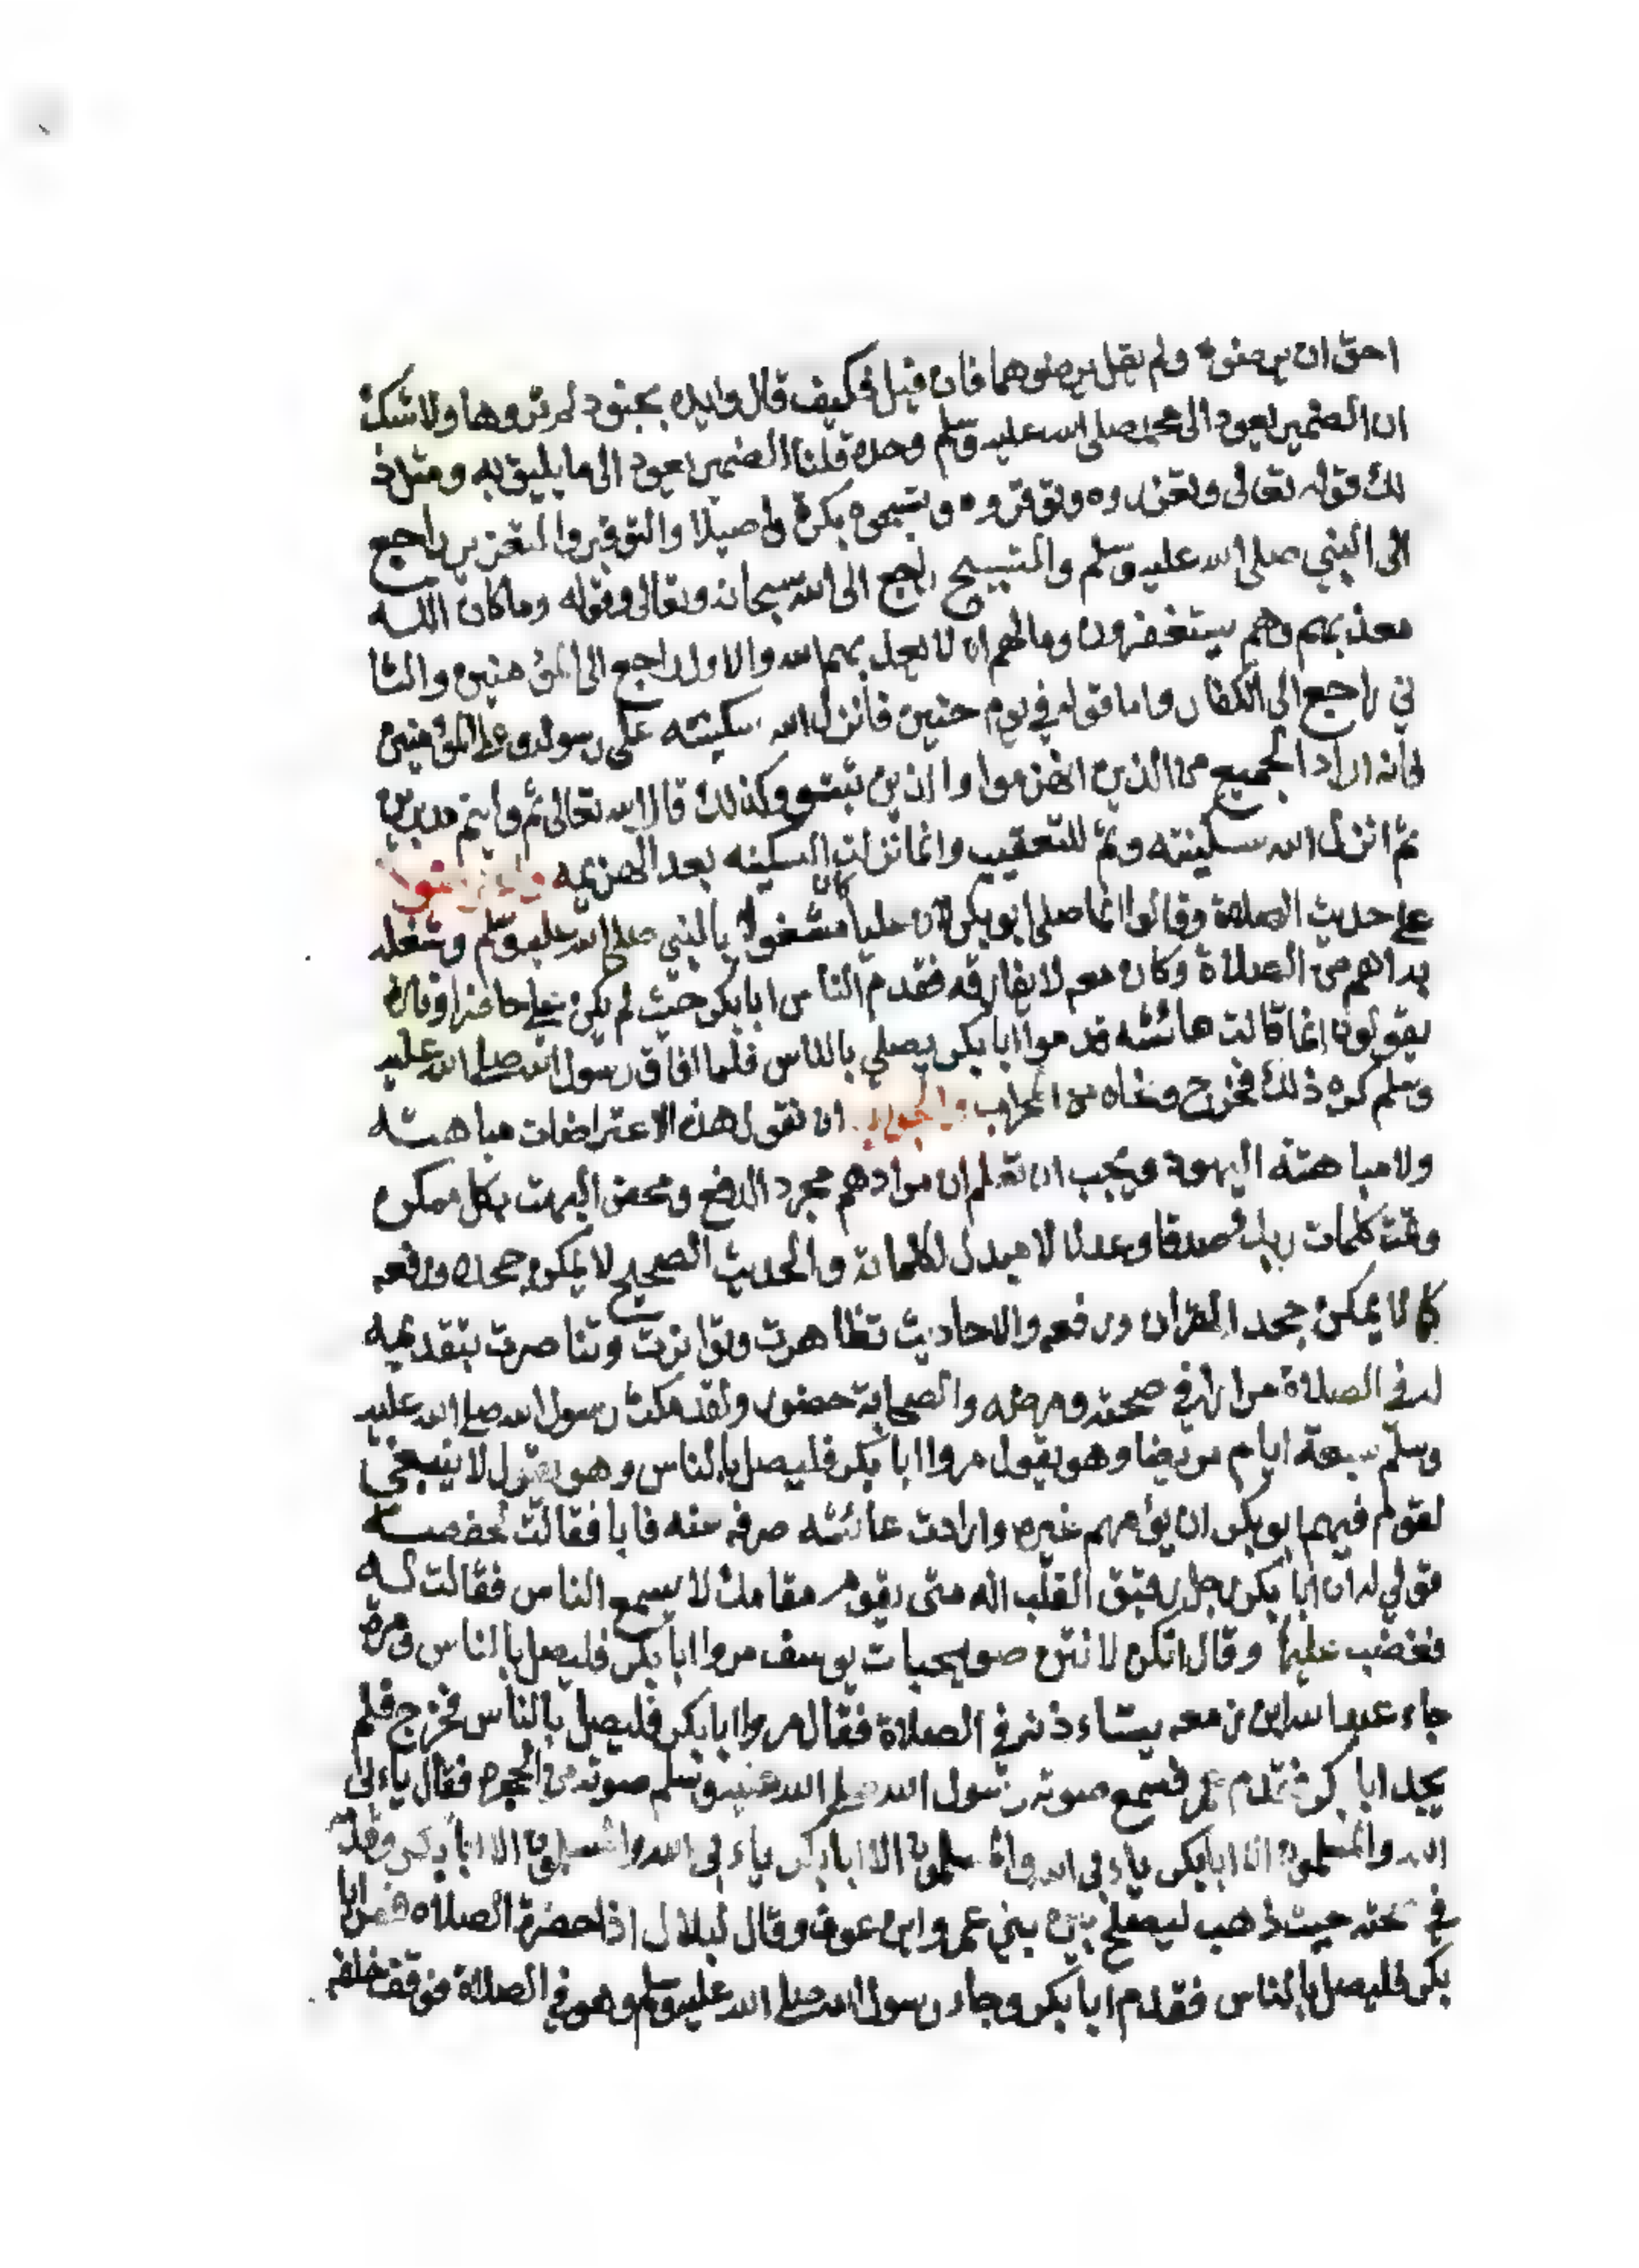 احق ان يرضوه ولم يقل يرضوهما فان قيل فكيف قال وايده بجنود لم تروها ولا شك
ان الضمير يعود الى محمد صلى الله عليه وسلم وحده قلنا الضمير يعود الى ما يليق به ومثل ذ
لك قوله تعالى وتعزروه وتوقروه وتسبحوه بكرة واصيلا والتوقير والتعزير راجع
الى النبي صلى الله عليه وسلم والتسبيح راجع الى الله سبحانه وتعالى وقوله وما كان الله
معذبهم وهم يستغفرون ومالهم ان لا يعذبهم الله والاول راجع الى المؤمنين والثا
ني راجع الى الكفار واما قوله في يوم حنين فانزل الله سكينته على رسوله وعلى المؤمنين
فانه اراد الجميع من الذين انهزموا والذين ثبتو وكذلك قال الله تعالى ثم وليتم مدبرين
ثم انزل الله سكينته وثم للتعقيب وانما نزلت السكينه بعد الهزيمه
على حديث الصلاة وقالوا انما صلى ابو بكر لان عليا كان مشغولا بالنبي صلى الله عليه وسلم وشغله
بداهم من الصلاة وكان معه لا يفارقه فقدم الناس ابا بكر حيث لم يكن علي حاضرا وقال
يقولون انما قالت عائشه قدموا ابا بكر يصلي بالناس فلما افاق رسول الله صلى الله عليه
وسلم كره ذلك فخرج ونحاه من المحراب والجواب ان نقول هذه الاعتراضات مباهته
ولا مباهتة اليهود ويجب ان تعلم ان مرادهم مجرد الدفع ومحض البهت بكل ممكن
وتمت كلمات ربك صدقا وعدلا لا مبدل لكلماته والحديث الصحيح لا يمكن جحده ودفعه
كما لا يمكن جحد القرآن ورفعه والاحاديث تظاهرت وتواترت وتناصرت بتقديمه
له في الصلاة مرارا في صحته ومرضه والصحابة حضور ولقد مكث رسول الله صلى الله عليه
وسلم سبعة ايام مريضا وهو يقول مروا ابا بكر فليصل بالناس وهو يقول لا ينبغي
لقوم فيهم ابو بكر ان يؤمهم غيره وارادت عائشه صرفه عنه فابا فقالت لحفصه
قولي له ان ابا بكر رجل رقيق القلب اله متى يقوم مقامك لا يسمع الناس فقالت له
فغضب عليها وقال انكن لانتن صويحبات يوسف مروا ابا بكر فليصل بالناس ومرة
جاء عبد الله ابن زمعه يستاء ذنه في الصلاة فقال مروا ابا بكر فليصل بالناس فخرج فلم
يجد ابا بكر فقدم عمر فسمع صوته رسول الله صلى الله عليه وسلم صوته من الحجره فقال ياءبى
الله والمسلمون الا ابا بكر ياءبى الله والمسلمون الا ابا بكر ياءبى الله والمسلمون الا ابا بكر وقدم
في صحته حيث ذهب ليصلح بين بني عمر وابن عوف وقال لبلال اذا حضرة الصلاه فمر ابا
بكر فليصل بالناس فقدم ابا بكر وجاء رسول الله صلى الله عليه وسلم وهو في الصلاة فوقف خلفه